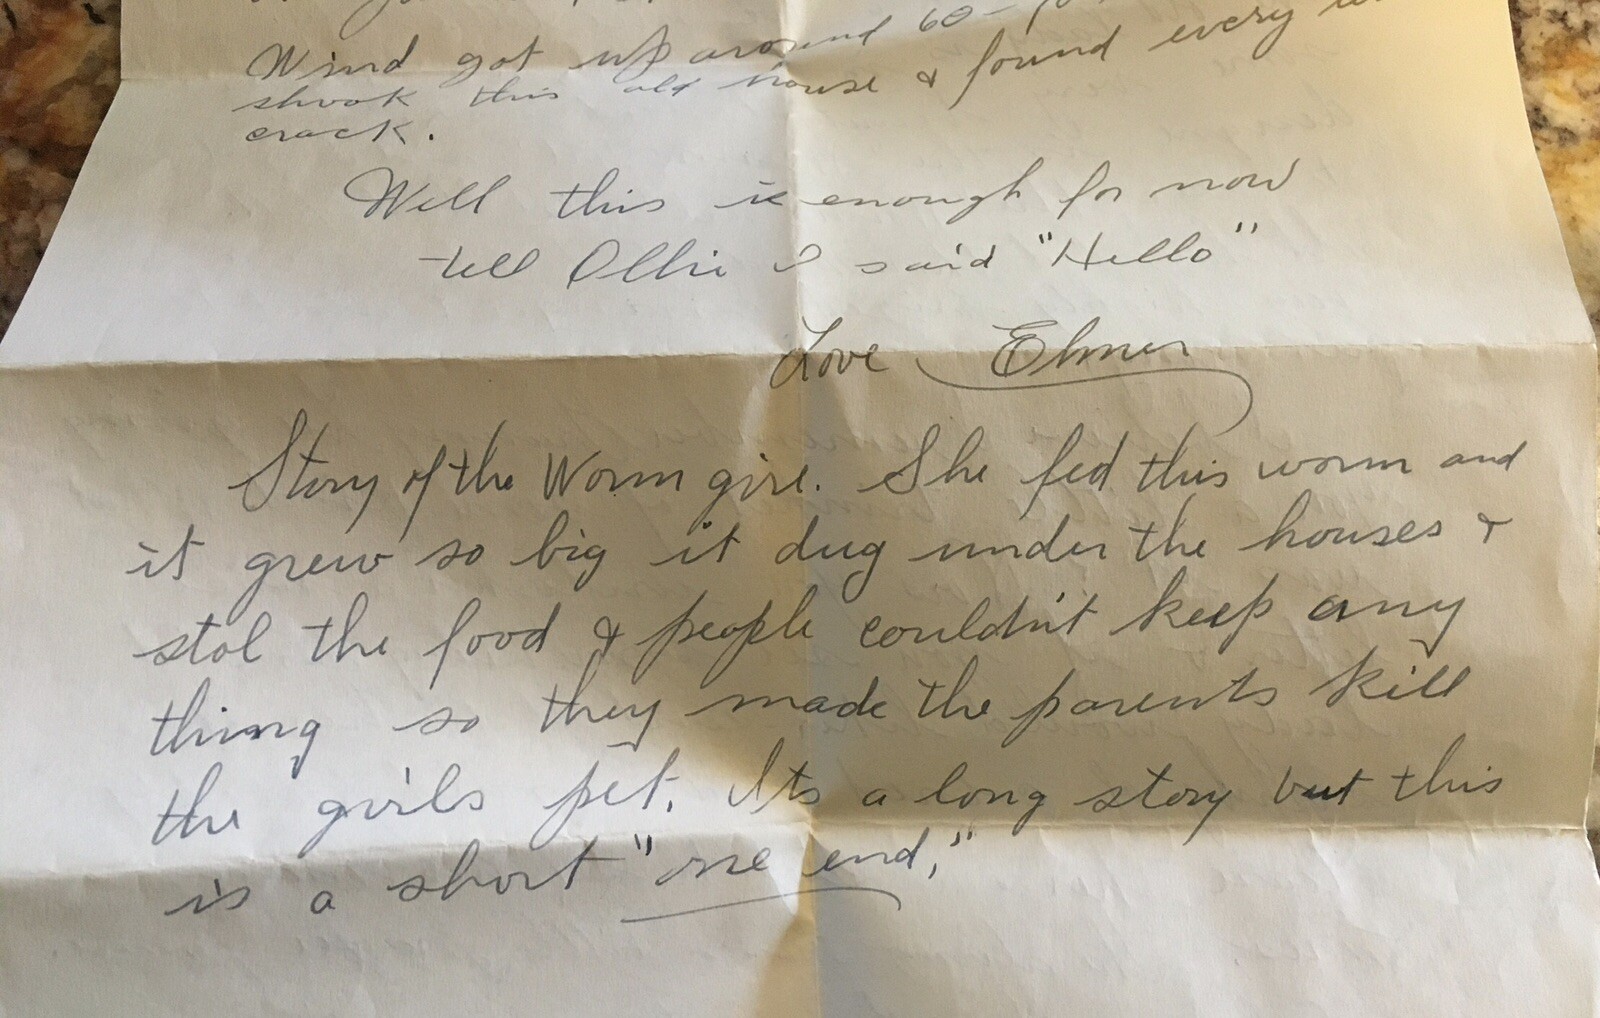 Wind got up around 60 -
shook this old house & found every
crack.
Well this is enough for now
tell Ollie I said "Hello"
Love Elmer
Story of the Worm girl. She fed this worm and
it grew so big it dug under the houses &
stol the food & people couldn't keep any
thing so they made the parents kill
the girls pet. Its a long story but this
is a short "one end,"